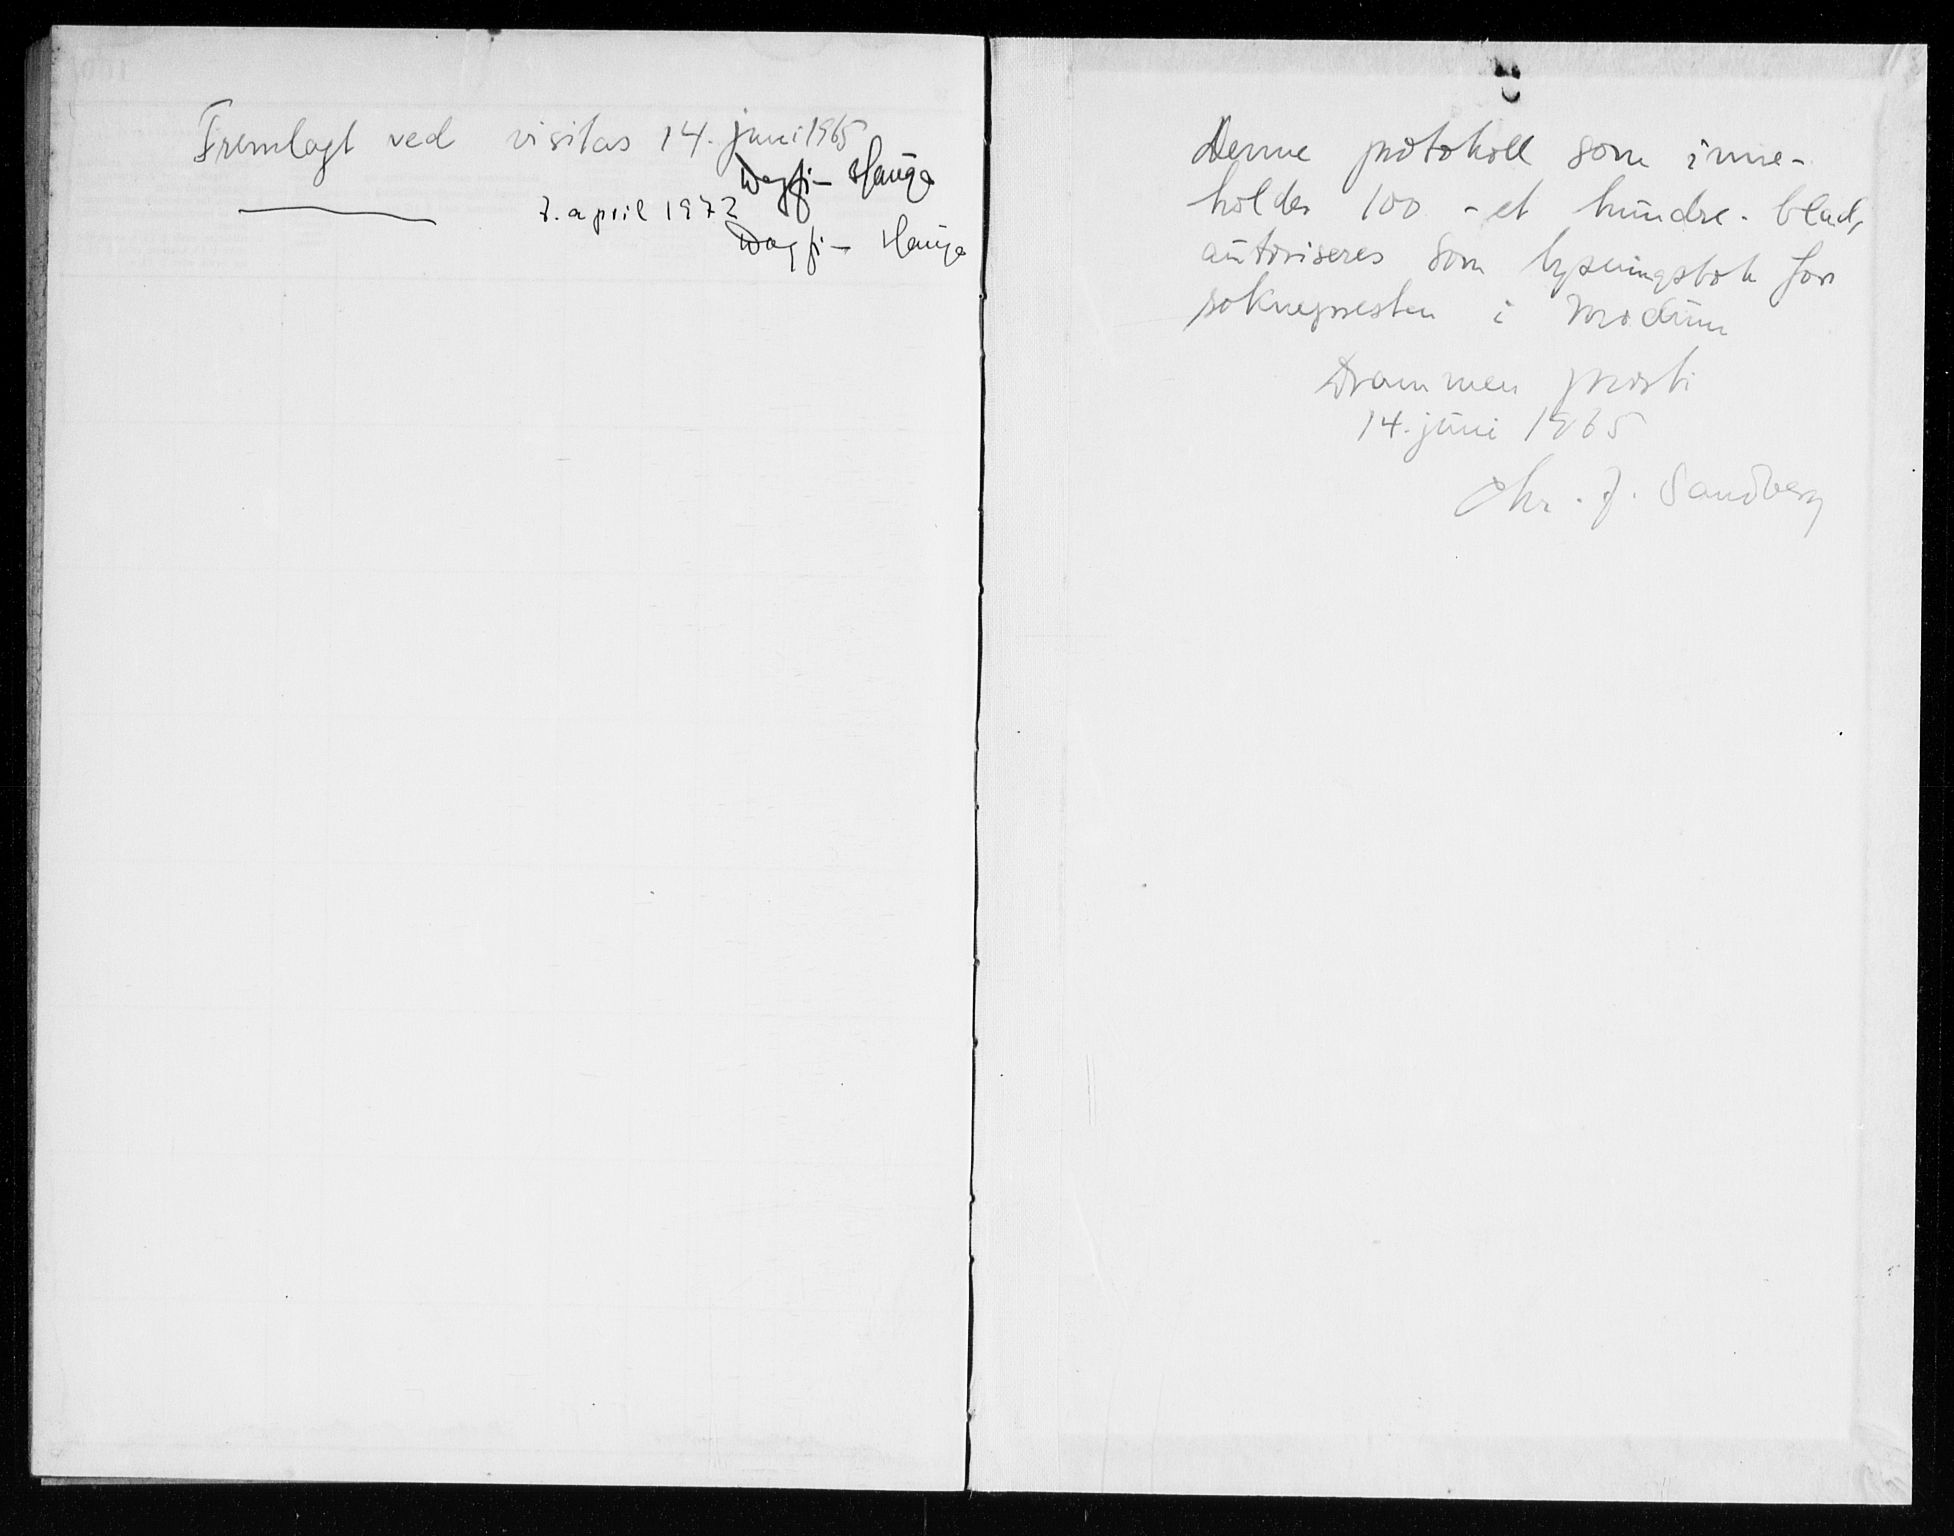 Fremlagt ved visitas 14. juni 1965
Dagfi- Hauge
7. april 1972
Dagfi- Hauge
Denne protokoll som inne-
holder 100 - et hundre - blad,
autoriseres som lysningsbok for
soknepresten i Modum
Drammen prosti
14. juni 1965
Chr. J. Sandberg